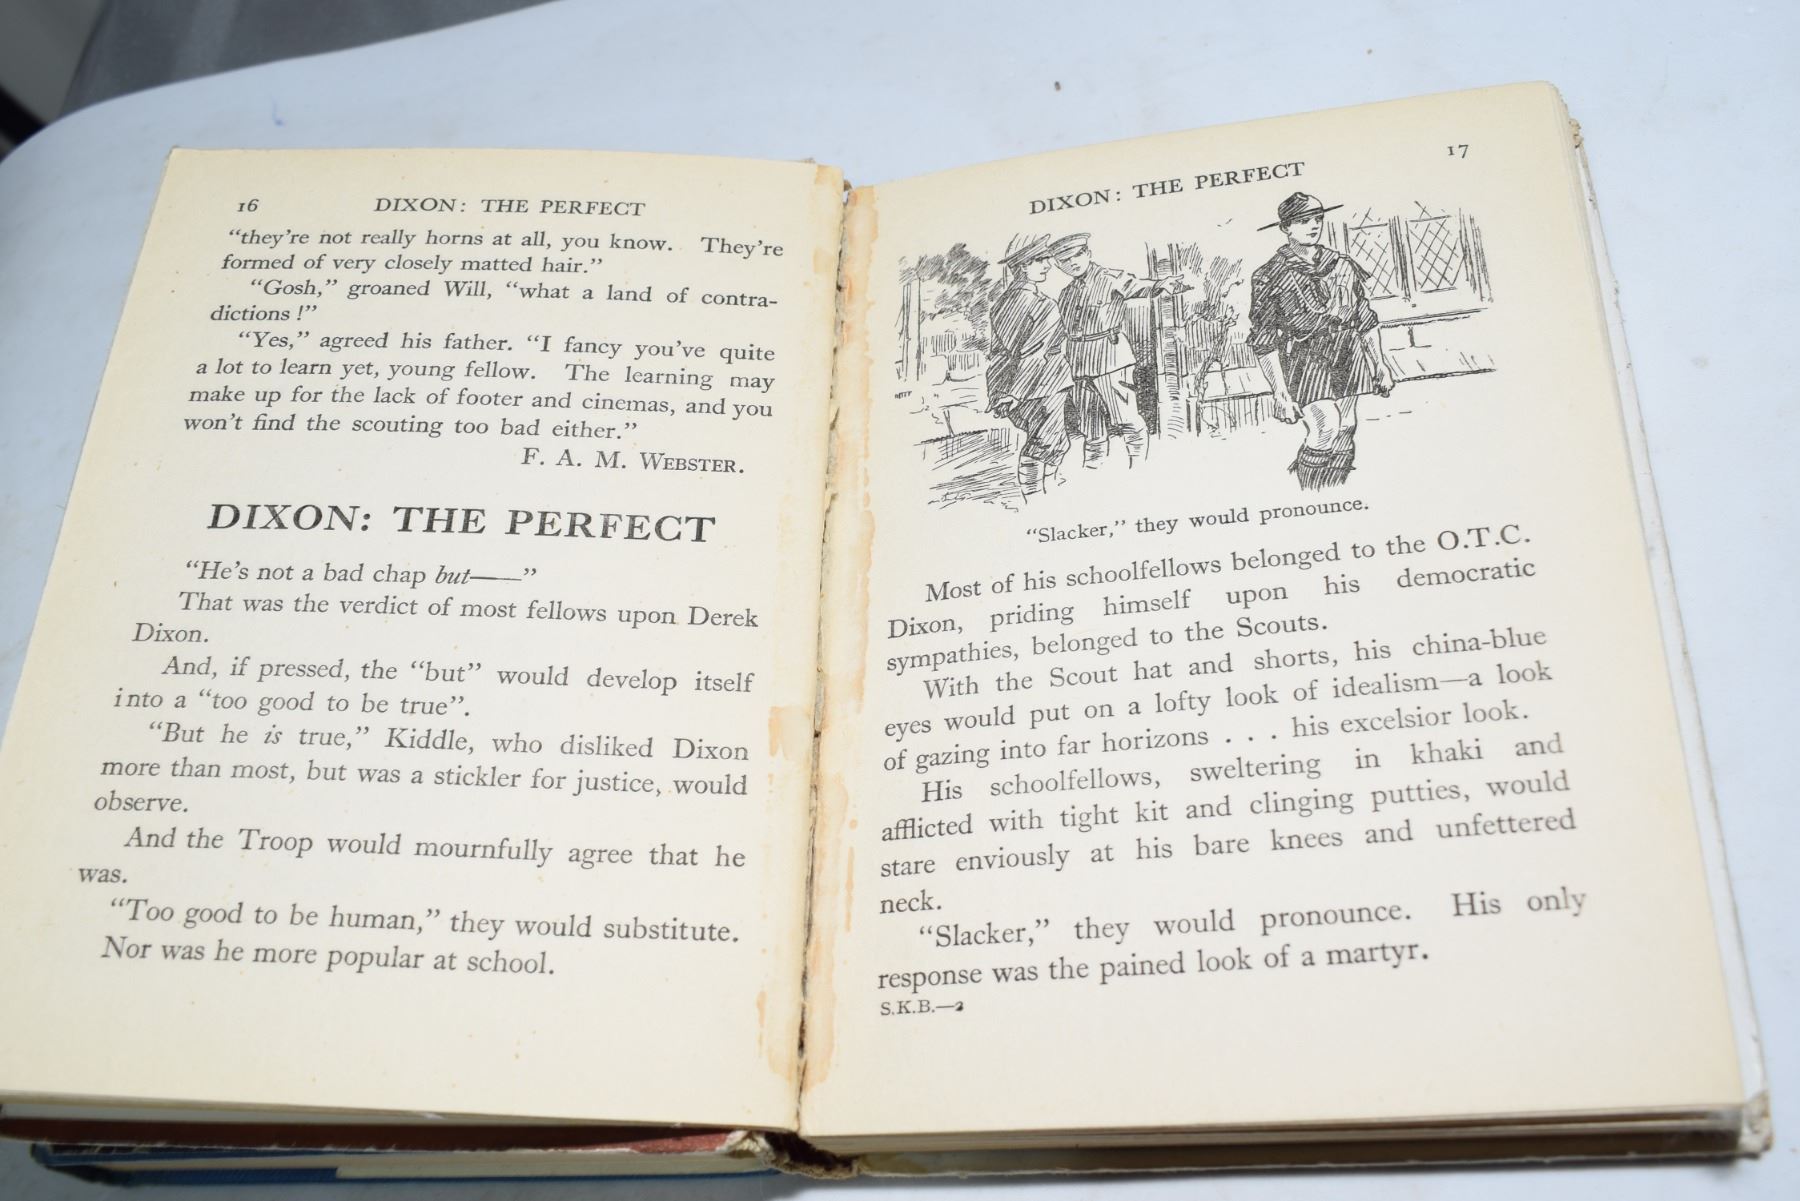 16 DIXON: THE PERFECT
“they’re not really horns at all, you know. They’re
formed of very closely matted hair.”
“Gosh,” groaned Will, “what a land of contra-
dictions !”
“Yes,” agreed his father. “I fancy you’ve quite
a lot to learn yet, young fellow. The learning may
make up for the lack of footer and cinemas, and you
won’t find the scouting too bad either.”
F. A. M. WEBSTER.
DIXON: THE PERFECT
“He’s not a bad chap but——”
That was the verdict of most fellows upon Derek
Dixon.
And, if pressed, the “but” would develop itself
into a “too good to be true”.
“But he is true,” Kiddle, who disliked Dixon
more than most, but was a stickler for justice, would
observe.
And the Troop would mournfully agree that he
was.
“Too good to be human,” they would substitute.
Nor was he more popular at school.
DIXON: THE PERFECT 17
“Slacker,” they would pronounce.
Most of his schoolfellows belonged to the O.T.C.
Dixon, priding himself upon his democratic
sympathies, belonged to the Scouts.
With the Scout hat and shorts, his china-blue
eyes would put on a lofty look of idealism—a look
of gazing into far horizons . . . his excelsior look.
His schoolfellows, sweltering in khaki and
afflicted with tight kit and clinging putties, would
stare enviously at his bare knees and unfettered
neck.
“Slacker,” they would pronounce. His only
response was the pained look of a martyr.
S.K.B.—2